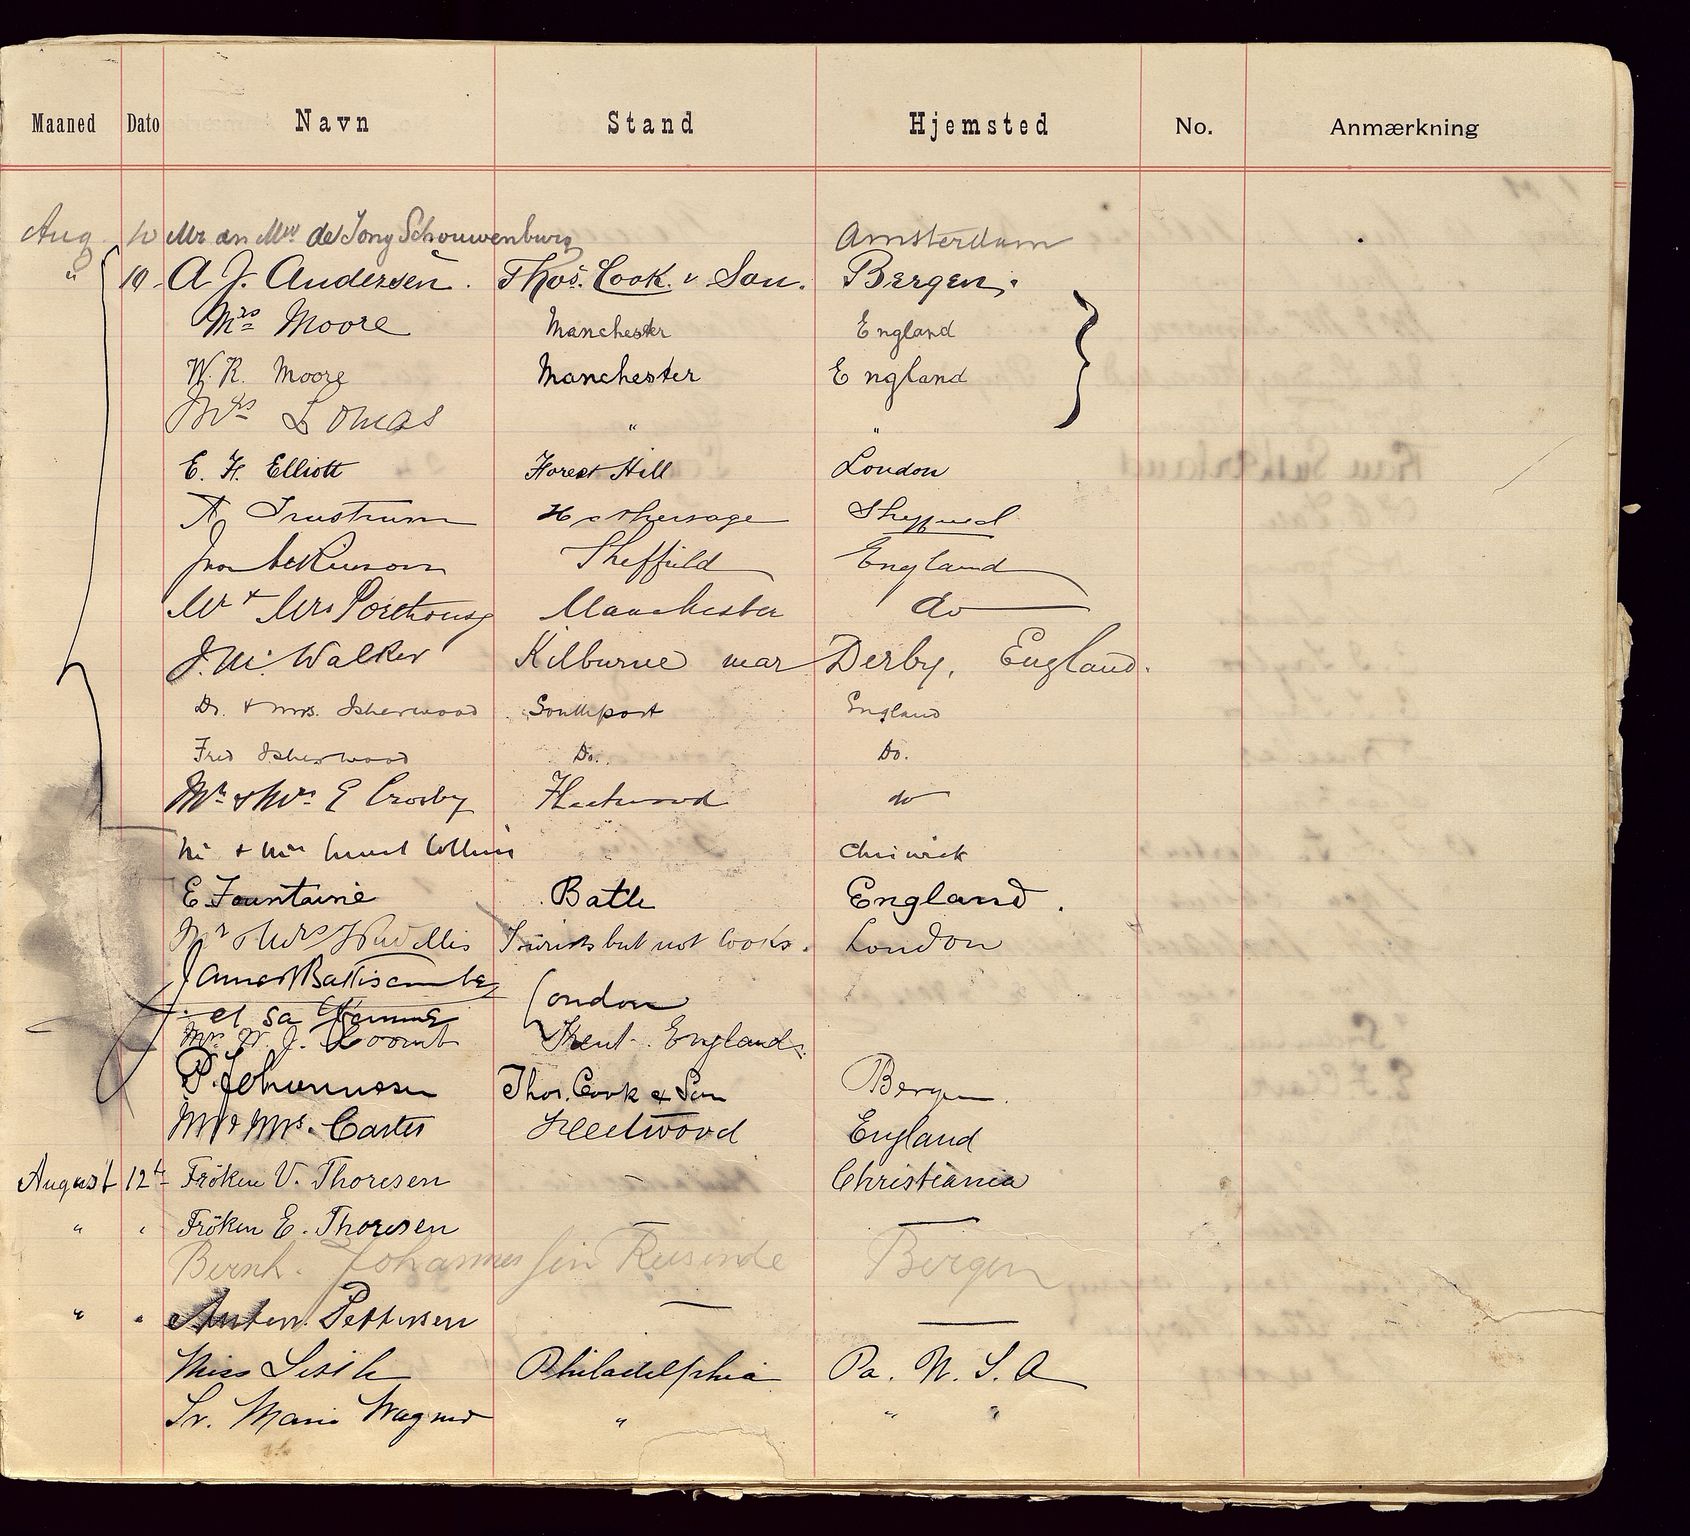 Maaned Dato Navn Stand Hjemsted No. Anmærkning
Aug. 10 Mr an Mrs de Jong Schouwenburg Amsterdam
" 10. A. J. Andersen. Thos. Cook & Son. Bergen.
Mrs Moore Manchester England
W. R. Moore Manchester England
Mrs Lomas " "
E. H. Elliott Forest Hill London
A Trustrum Hathersage Sheffield
Jno Atkinson Sheffield England
Mr + Mrs Porthouse Manchester do
J. M. Walker Kilburne near Derby, England.
Dr. + Mrs. Isherwood Southport England
Fred Isherwood Do. Do.
Mr & Mrs E Crosby Fleetwood do
Mr + Mrs Collins Chiswick
E. Fountaine Batle England.
Mr & Mrs Tourists but not Cooks. London
James Battiscombe
et sa femme London
Mrs W. J. Loomb Kent. England.
P. Johannessen Thos. Cook & Son Bergen.
Mr & Mrs. Carter Fleetwood England
August 12th Fröken V. Thoresen - Christiania
" " Fröken E. Thoresen — —
Bernh. Johannessen Reisende Bergen
" " Anton Pettersen — —
Miss Philadelphia Pa. U. S. A
Sr. Marie Wagner " " "